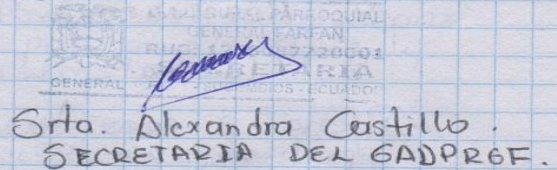 PARROQUIAL
GENERAL FARFAN
SECRETARIA
GENERAL
ECUADOR
Srta. Alexandra Castillo.
SECRETARIA DEL GADPRGF.